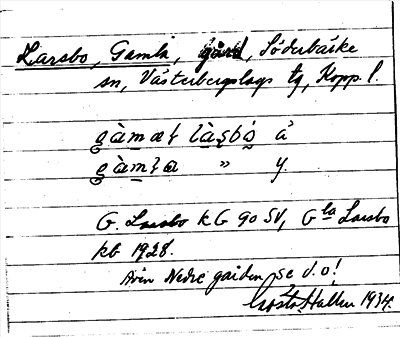 Larsbo, Gamla, gård, Söderbärke
sn, Västerbergslags tg, Kopp. l.
gàmæł làsbo å
gàmła " y.
G. Larsbo kG 90 SV, Gla Larsbo
kb 1928.
Även Nedre gården, se d. o!
Gösta Hallen 1934.